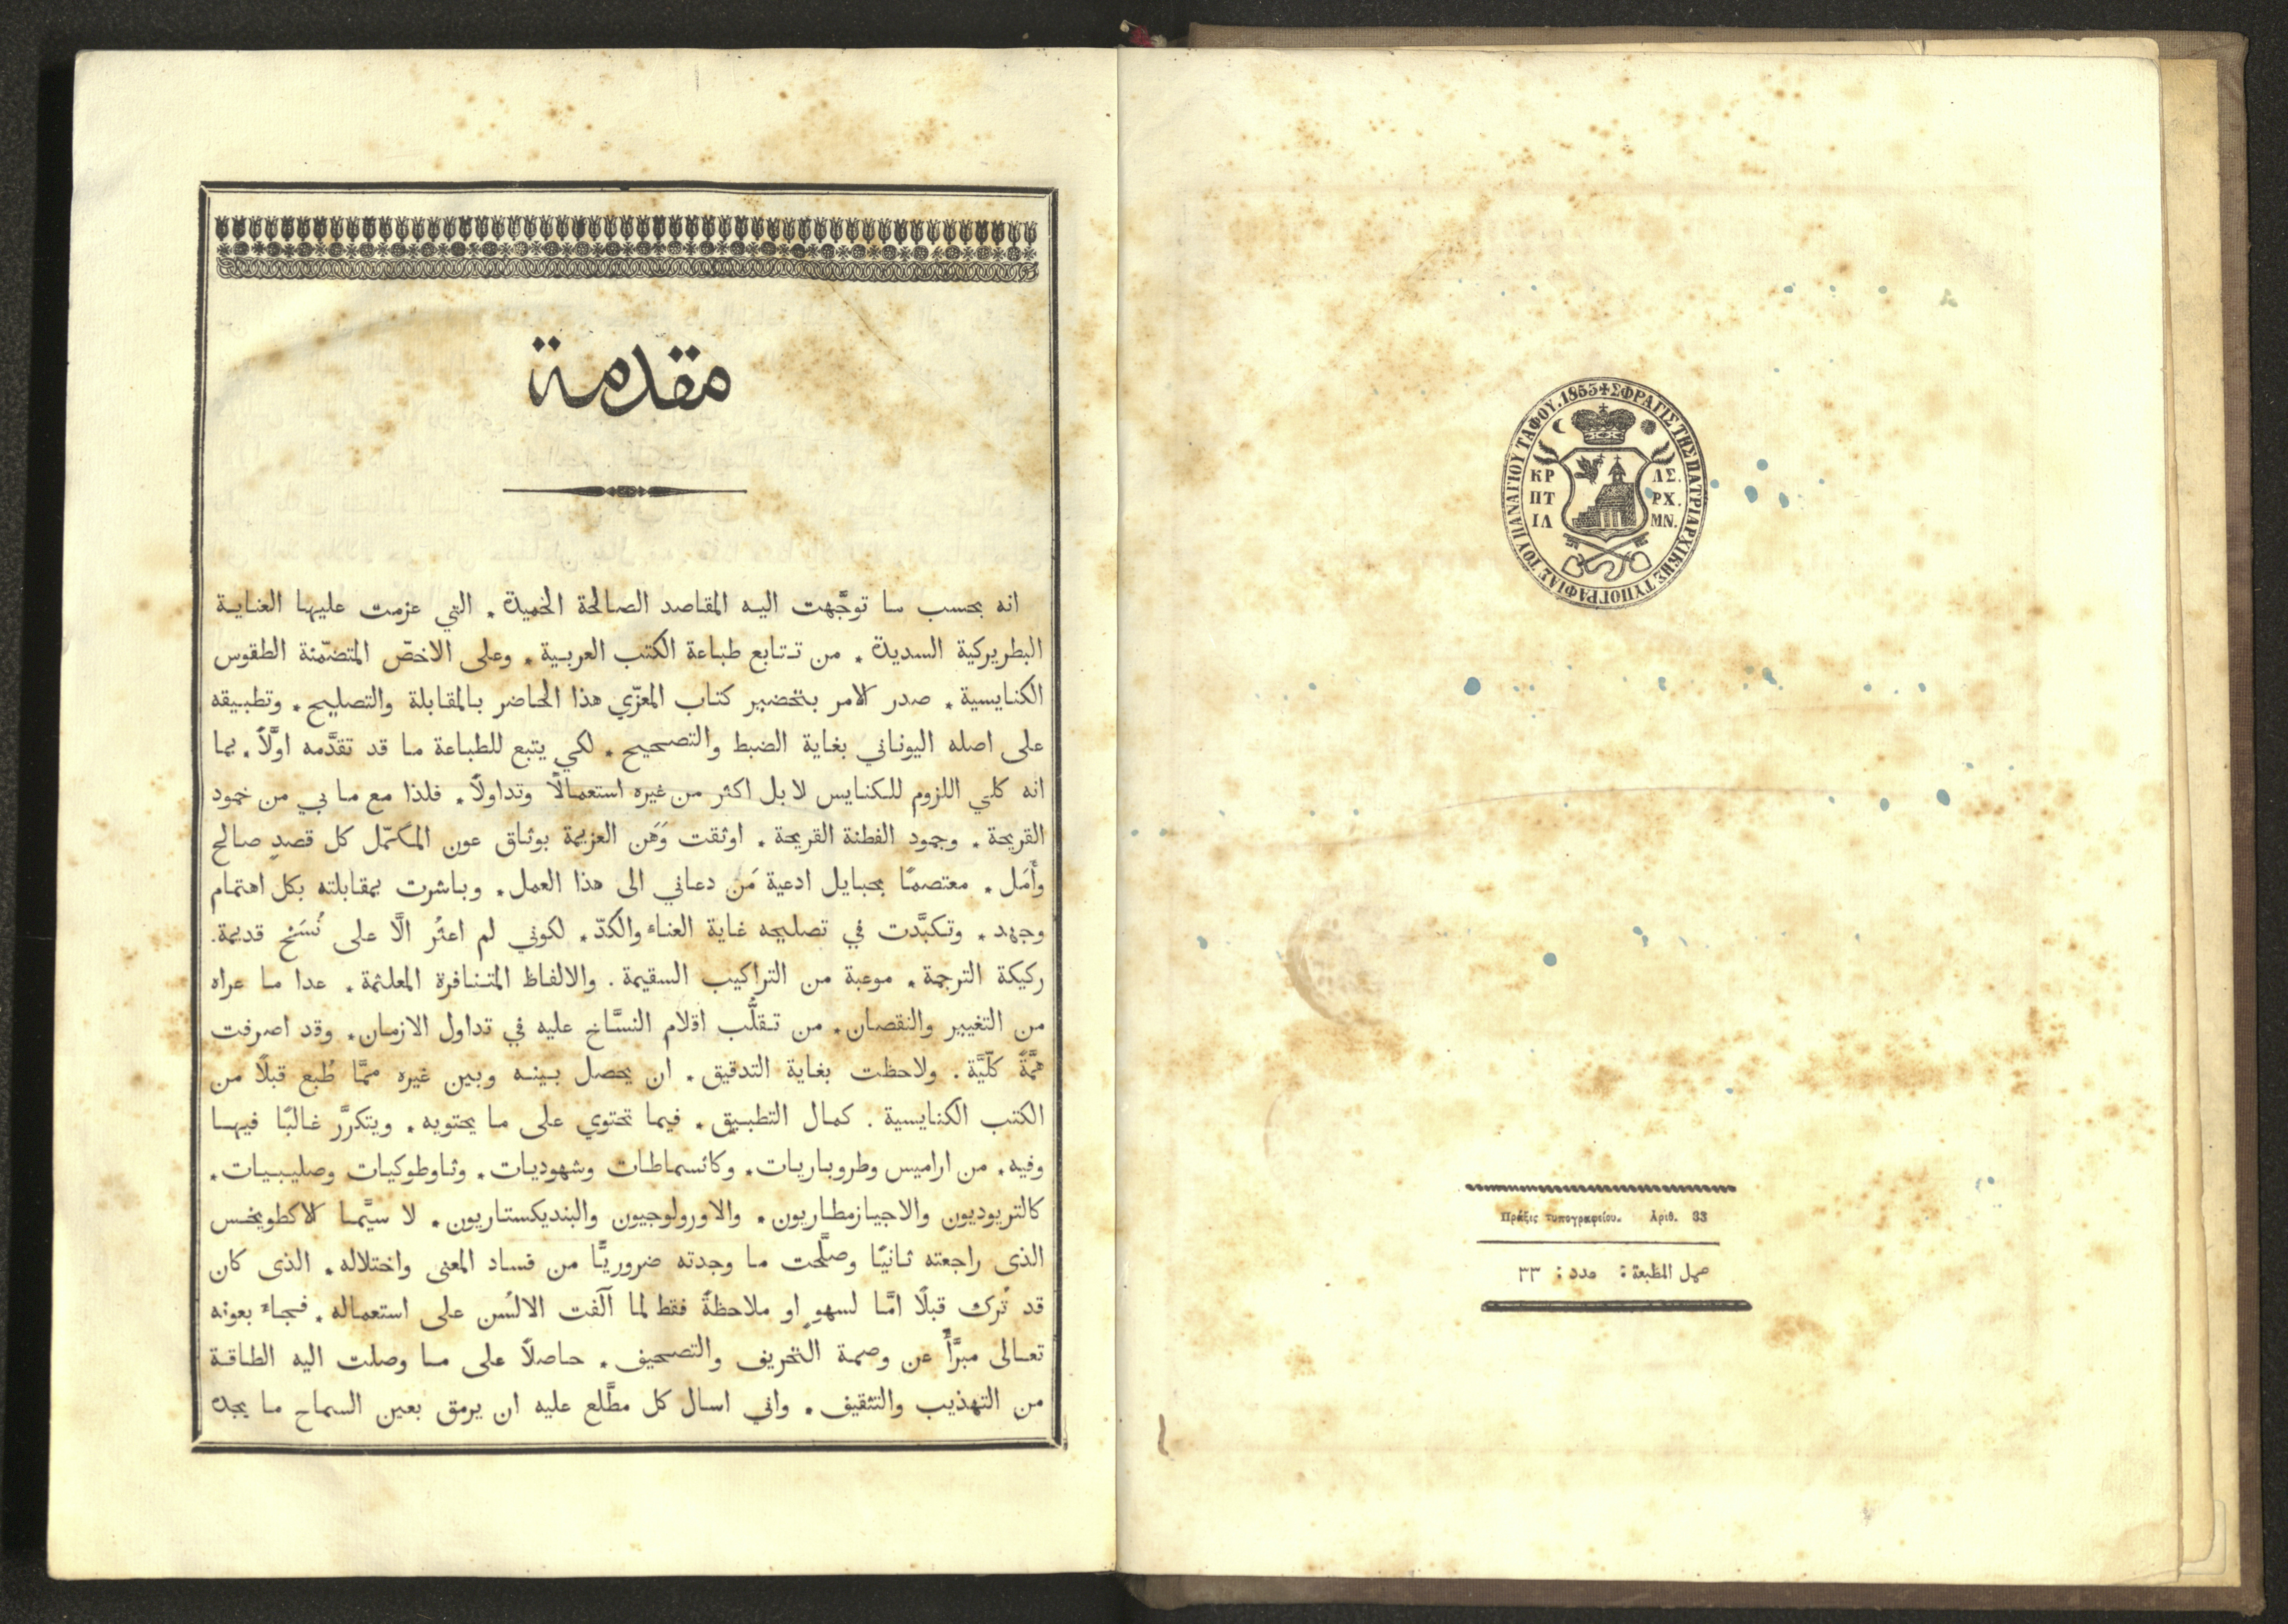 ΣΦΡΑΓΙΣ ΤΗΣ ΠΑΤΡΙΑΡΧΙΚΗΣ ΤΥΠΟΓΡΑΦΙΑΣ ΤΟΥ ΠΑΝΑΓΙΟΥ ΤΑΦΟΥ. 1853
ΚΡ ΛΣ.
ΠΤ ΡΧ.
ΙΛ ΜΝ.
Πράξις τυπογραφείου. Αριθ. 33
عمل المطبعة : عدد : ٣٣
مقدمة
انه بحسب ما توجَّهت اليه المقاصد الصالحة الحميدة ٭ التي عزمت عليها العناية
البطريركية السديدة ٭ من تتابع طباعة الكتب العربية ٭ وعلى الاخصّ المتضمّنة الطقوس
الكنايسية ٭ صدر الامر بتحضير كتاب المعزّي هذا الحاضر بالمقابلة والتصليح ٭ وتطبيقه
على اصله اليوناني بغاية الضبط والتصحيح ٭ لكي يتبع للطباعة ما قد تقدَّمه اوَّلاً ٭ بما
انه كلي اللزوم للكنايس لا بل اكثر من غيره استعمالاً وتداولاً ٭ فلذا مع ما بي من خمود
القريحة ٭ وجمود الفطنة القريحة ٭ اوثقت وَهَن العزيمة بوثاق عون المكمّل كل قصدٍ صالح
وأَمَل ٭ معتصمًا بحبايل ادعية مَن دعاني الى هذا العمل ٭ وباشرت بمقابلته بكل اهتمام
وجهد ٭ وتكبَّدت في تصليحه غاية العناء والكدّ ٭ لكوني لم اعثُر الَّا على نُسَخ قديمة.
ركيكة الترجمة ٭ موعبة من التراكيب السقيمة . والالفاظ المتنافرة المعلثمة ٭ عدا ما عراه
من التغيير والنقصان ٭ من تقلُّب اقلام النسَّاخ عليه في تداول الازمان ٭ وقد اصرفت
همَّةً كلّيَّة . ولاحظت بغاية التدقيق ٭ ان يحصل بينه وبين غيره ممَّا طُبع قبلاً من
الكتب الكنايسية . كمال التطبيق ٭ فيما تحتوي على ما يحتويه ٭ ويتكرَّر غالبًا فيها
وفيه ٭ من اراميس وطروباريات ٭ وكاتسماطات وشهوديات ٭ وثاوطوكيات وصليبيات ٭
كالتريوديون والاجيازمطاريون ٭ والاورولوجيون والبنديكستاريون ٭ لا سيَّما الاكطويخس
الذى راجعته ثانيًا وصلَّحت ما وجدته ضروريًّا من فساد المعنى واختلاله ٭ الذى كان
قد تُرك قبلًا امَّا لسهوٍ او ملاحظةً فقط لما آلفت الالسُن على استعماله ٭ فجاء بعونه
تعالى مبرَّأً عن وصمة التحريف والتصحيف ٭ حاصلاً على ما وصلت اليه الطاقة
من التهذيب والتثقيف ٭ واني اسال كل مطَّلع عليه ان يرمق بعين السماح ما يجده